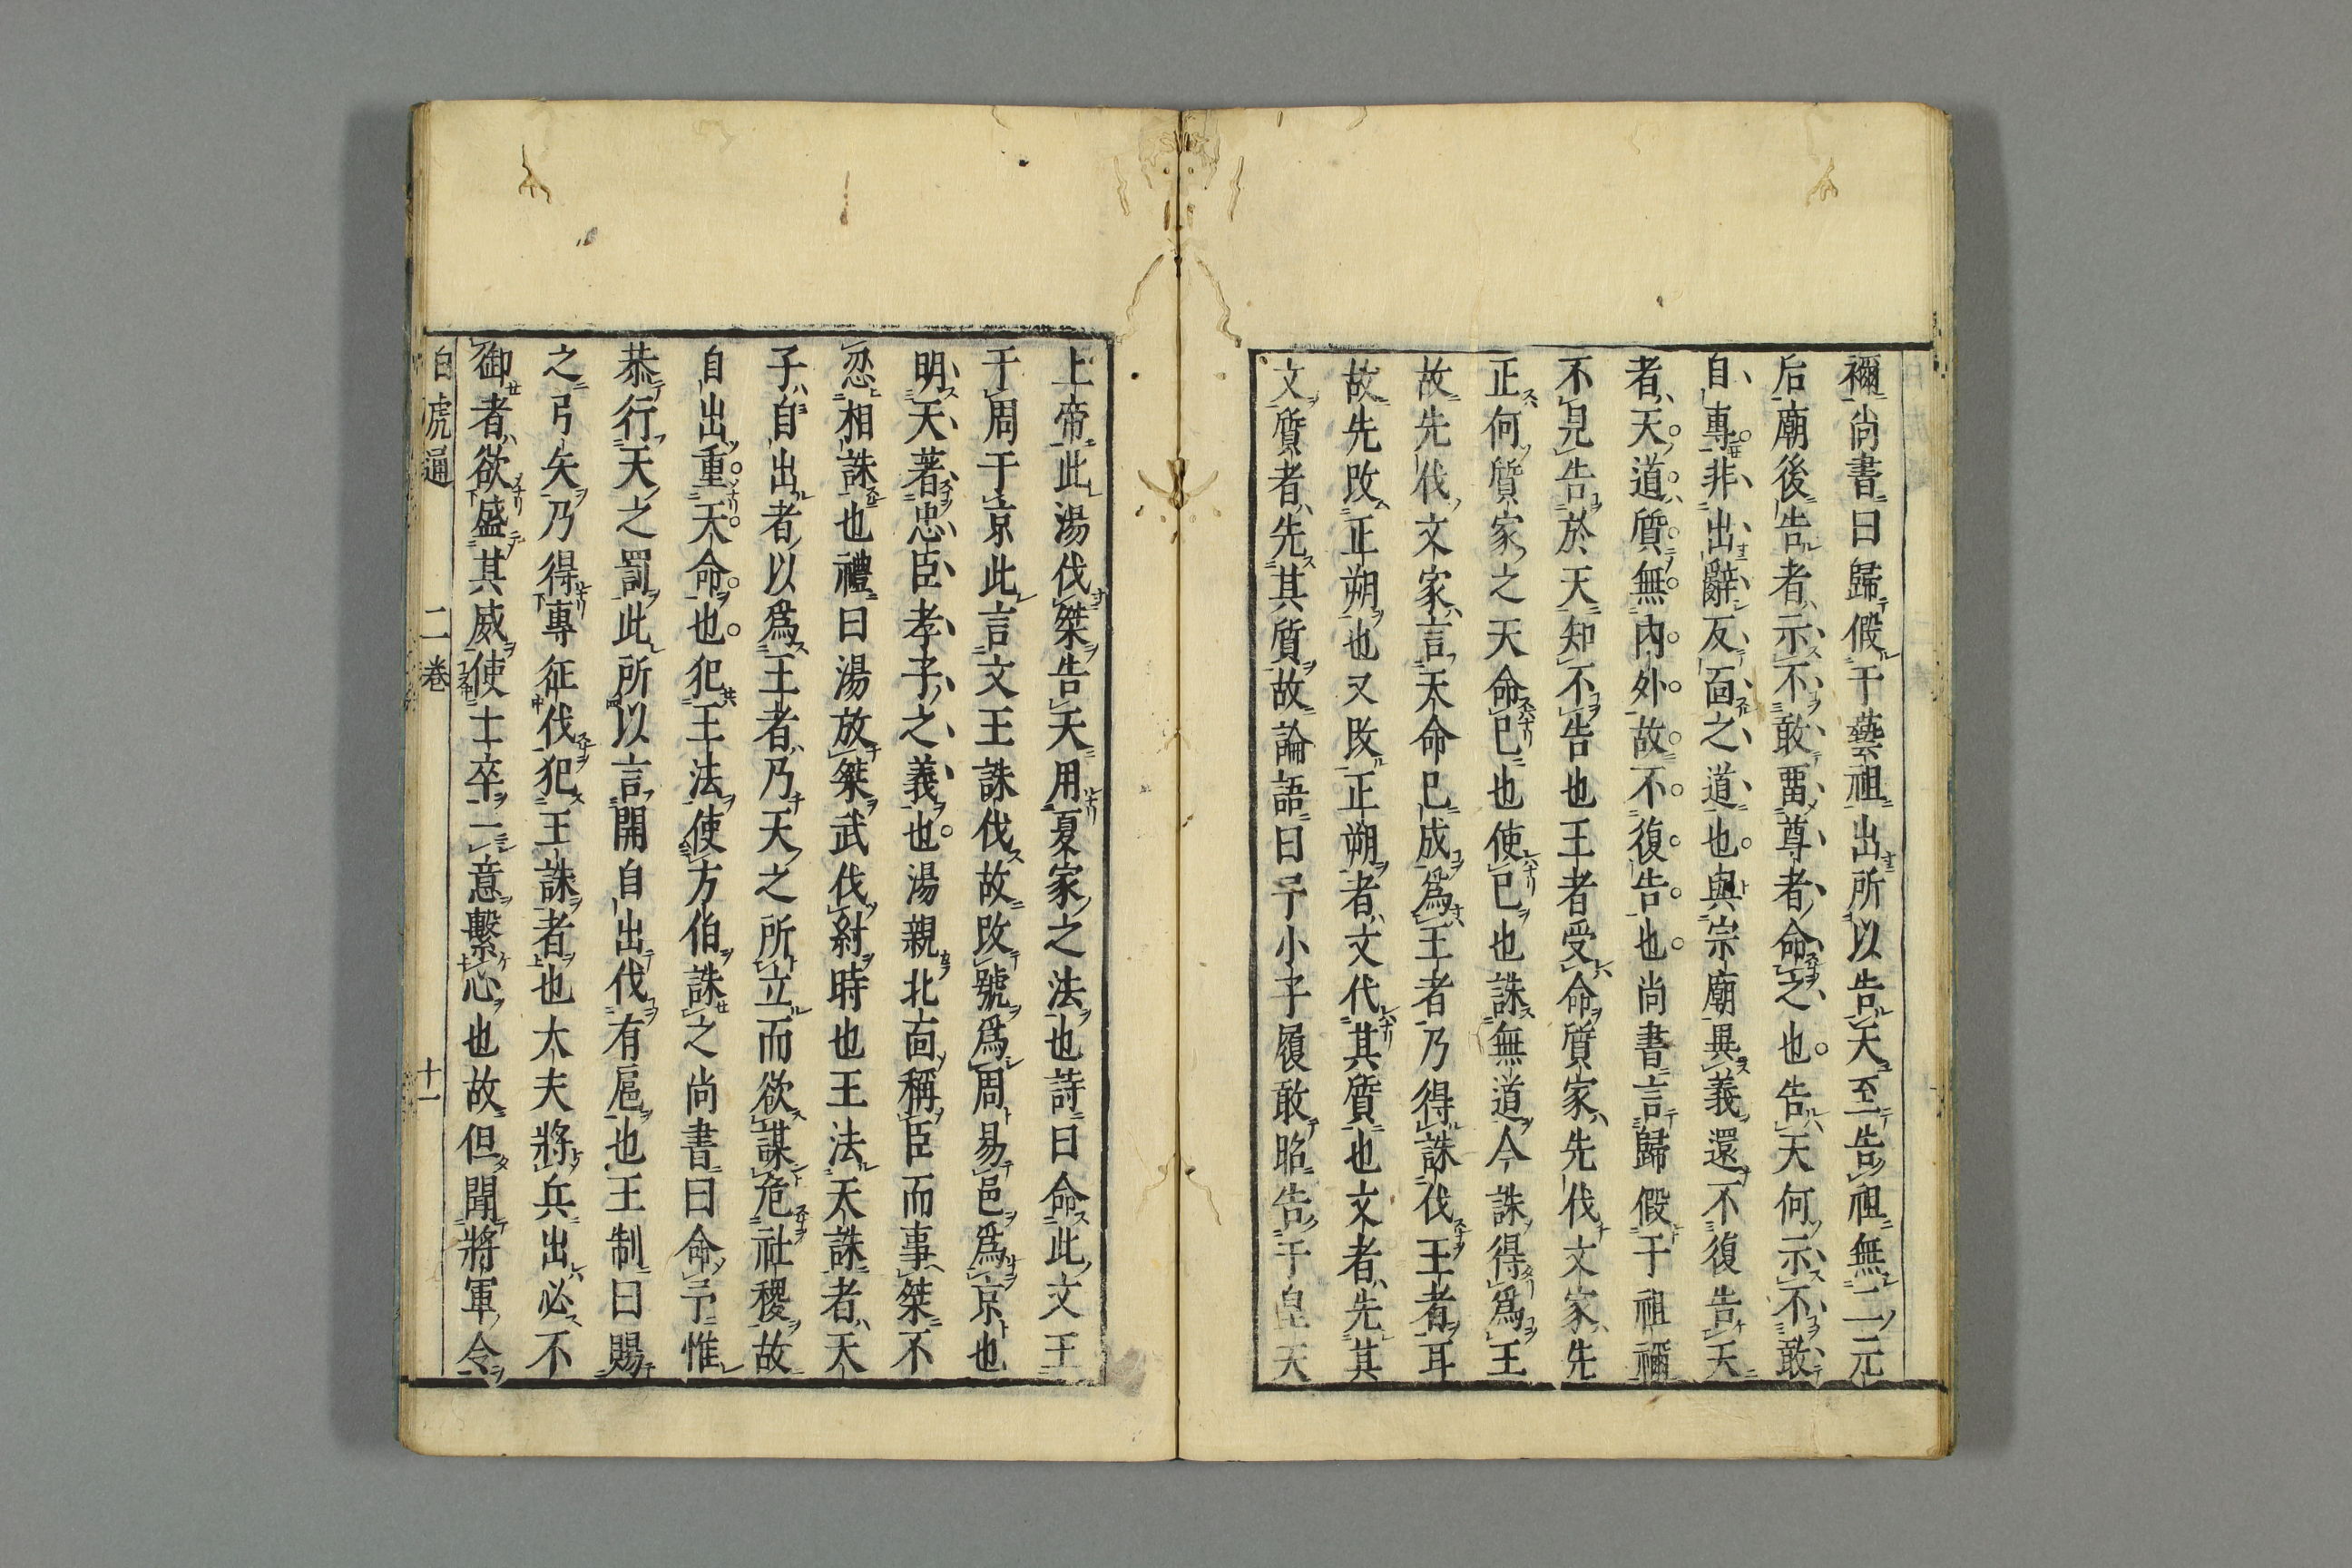 禰尚書曰歸假于藝祖出所以告天至告祖無二元
后廟後告者示不敢畱尊者命之也告天何示不敢
自專非出辭反靣之道也與宗廟異義還不復告天
者天道質無内外故不復告也尚書言歸假于祖禰
不見告於天知不告也王者受命質家先伐文家先
正何質家之天命已也使已也誅無道今誅得爲王
故先伐文家言天命已成爲王者乃得誅伐王者耳
故先改正朔也又改正朔者文代其質也文者先其
文質者先其質故論語曰予小子履敢昭告于皇天
上帝此湯伐桀告天用夏家之法也詩曰命此文王
于周于京此言文王誅伐故改號爲周易邑爲京也
明天著忠臣孝子之義也湯親北靣稱臣而事桀不
忍相誅也禮曰湯放桀武伐紂時也王法天誅者天
子自出者以爲王者乃天之所立而欲謀危社稷故
自出重天命也犯王法使方伯誅之尚書曰命予惟
恭行天之罰此所以言開自出伐有扈也王制曰賜
之弓矢乃得專征伐犯王誅者也大夫將兵出必不
御者欲盛其威使士卒一意繫心也故但聞將軍令
白虎通 二卷 十一